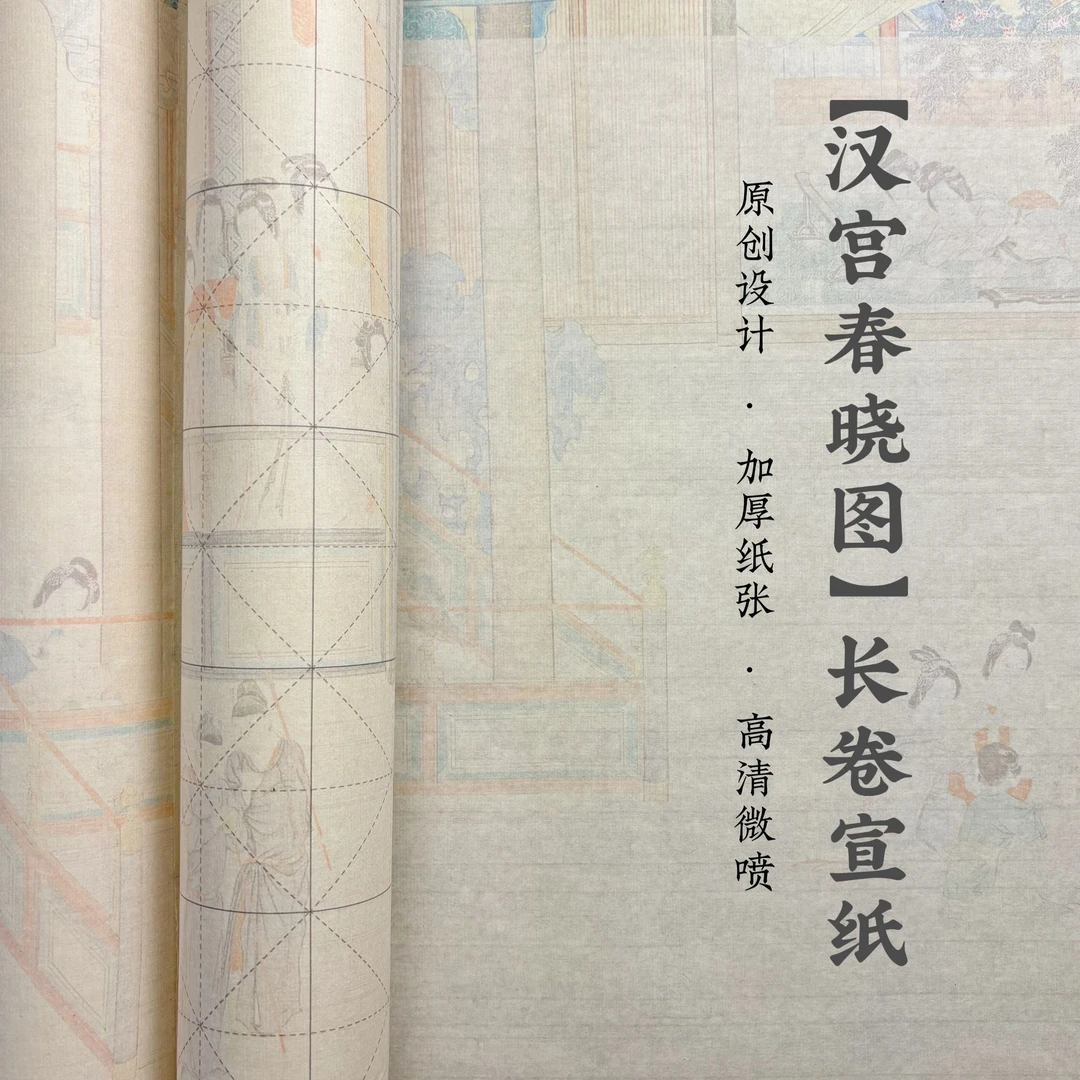 【汉宫春晓图】长卷宣纸
原创设计 · 加厚纸张 · 高清微喷